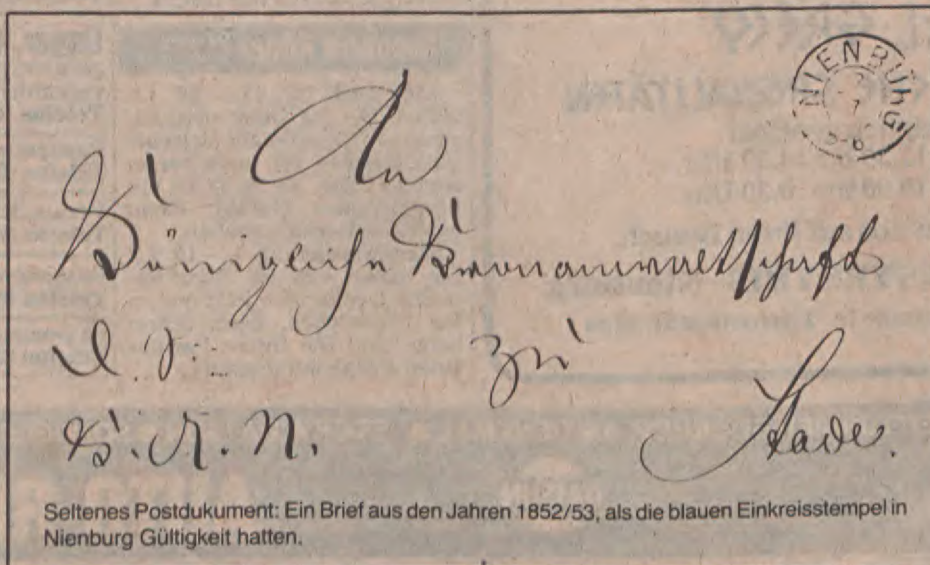 NIENBURG
7
5-6
An
Königliche Kronanwaltschaft
zu
K. A. N.
Stade.
Seltenes Postdokument: Ein Brief aus den Jahren 1852/53, als die blauen Einkreisstempel in
Nienburg Gültigkeit hatten.